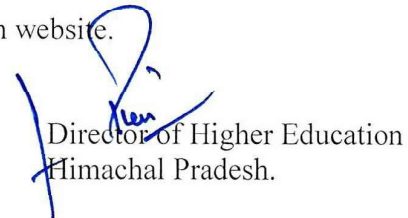 website.
Director of Higher Education
Himachal Pradesh.